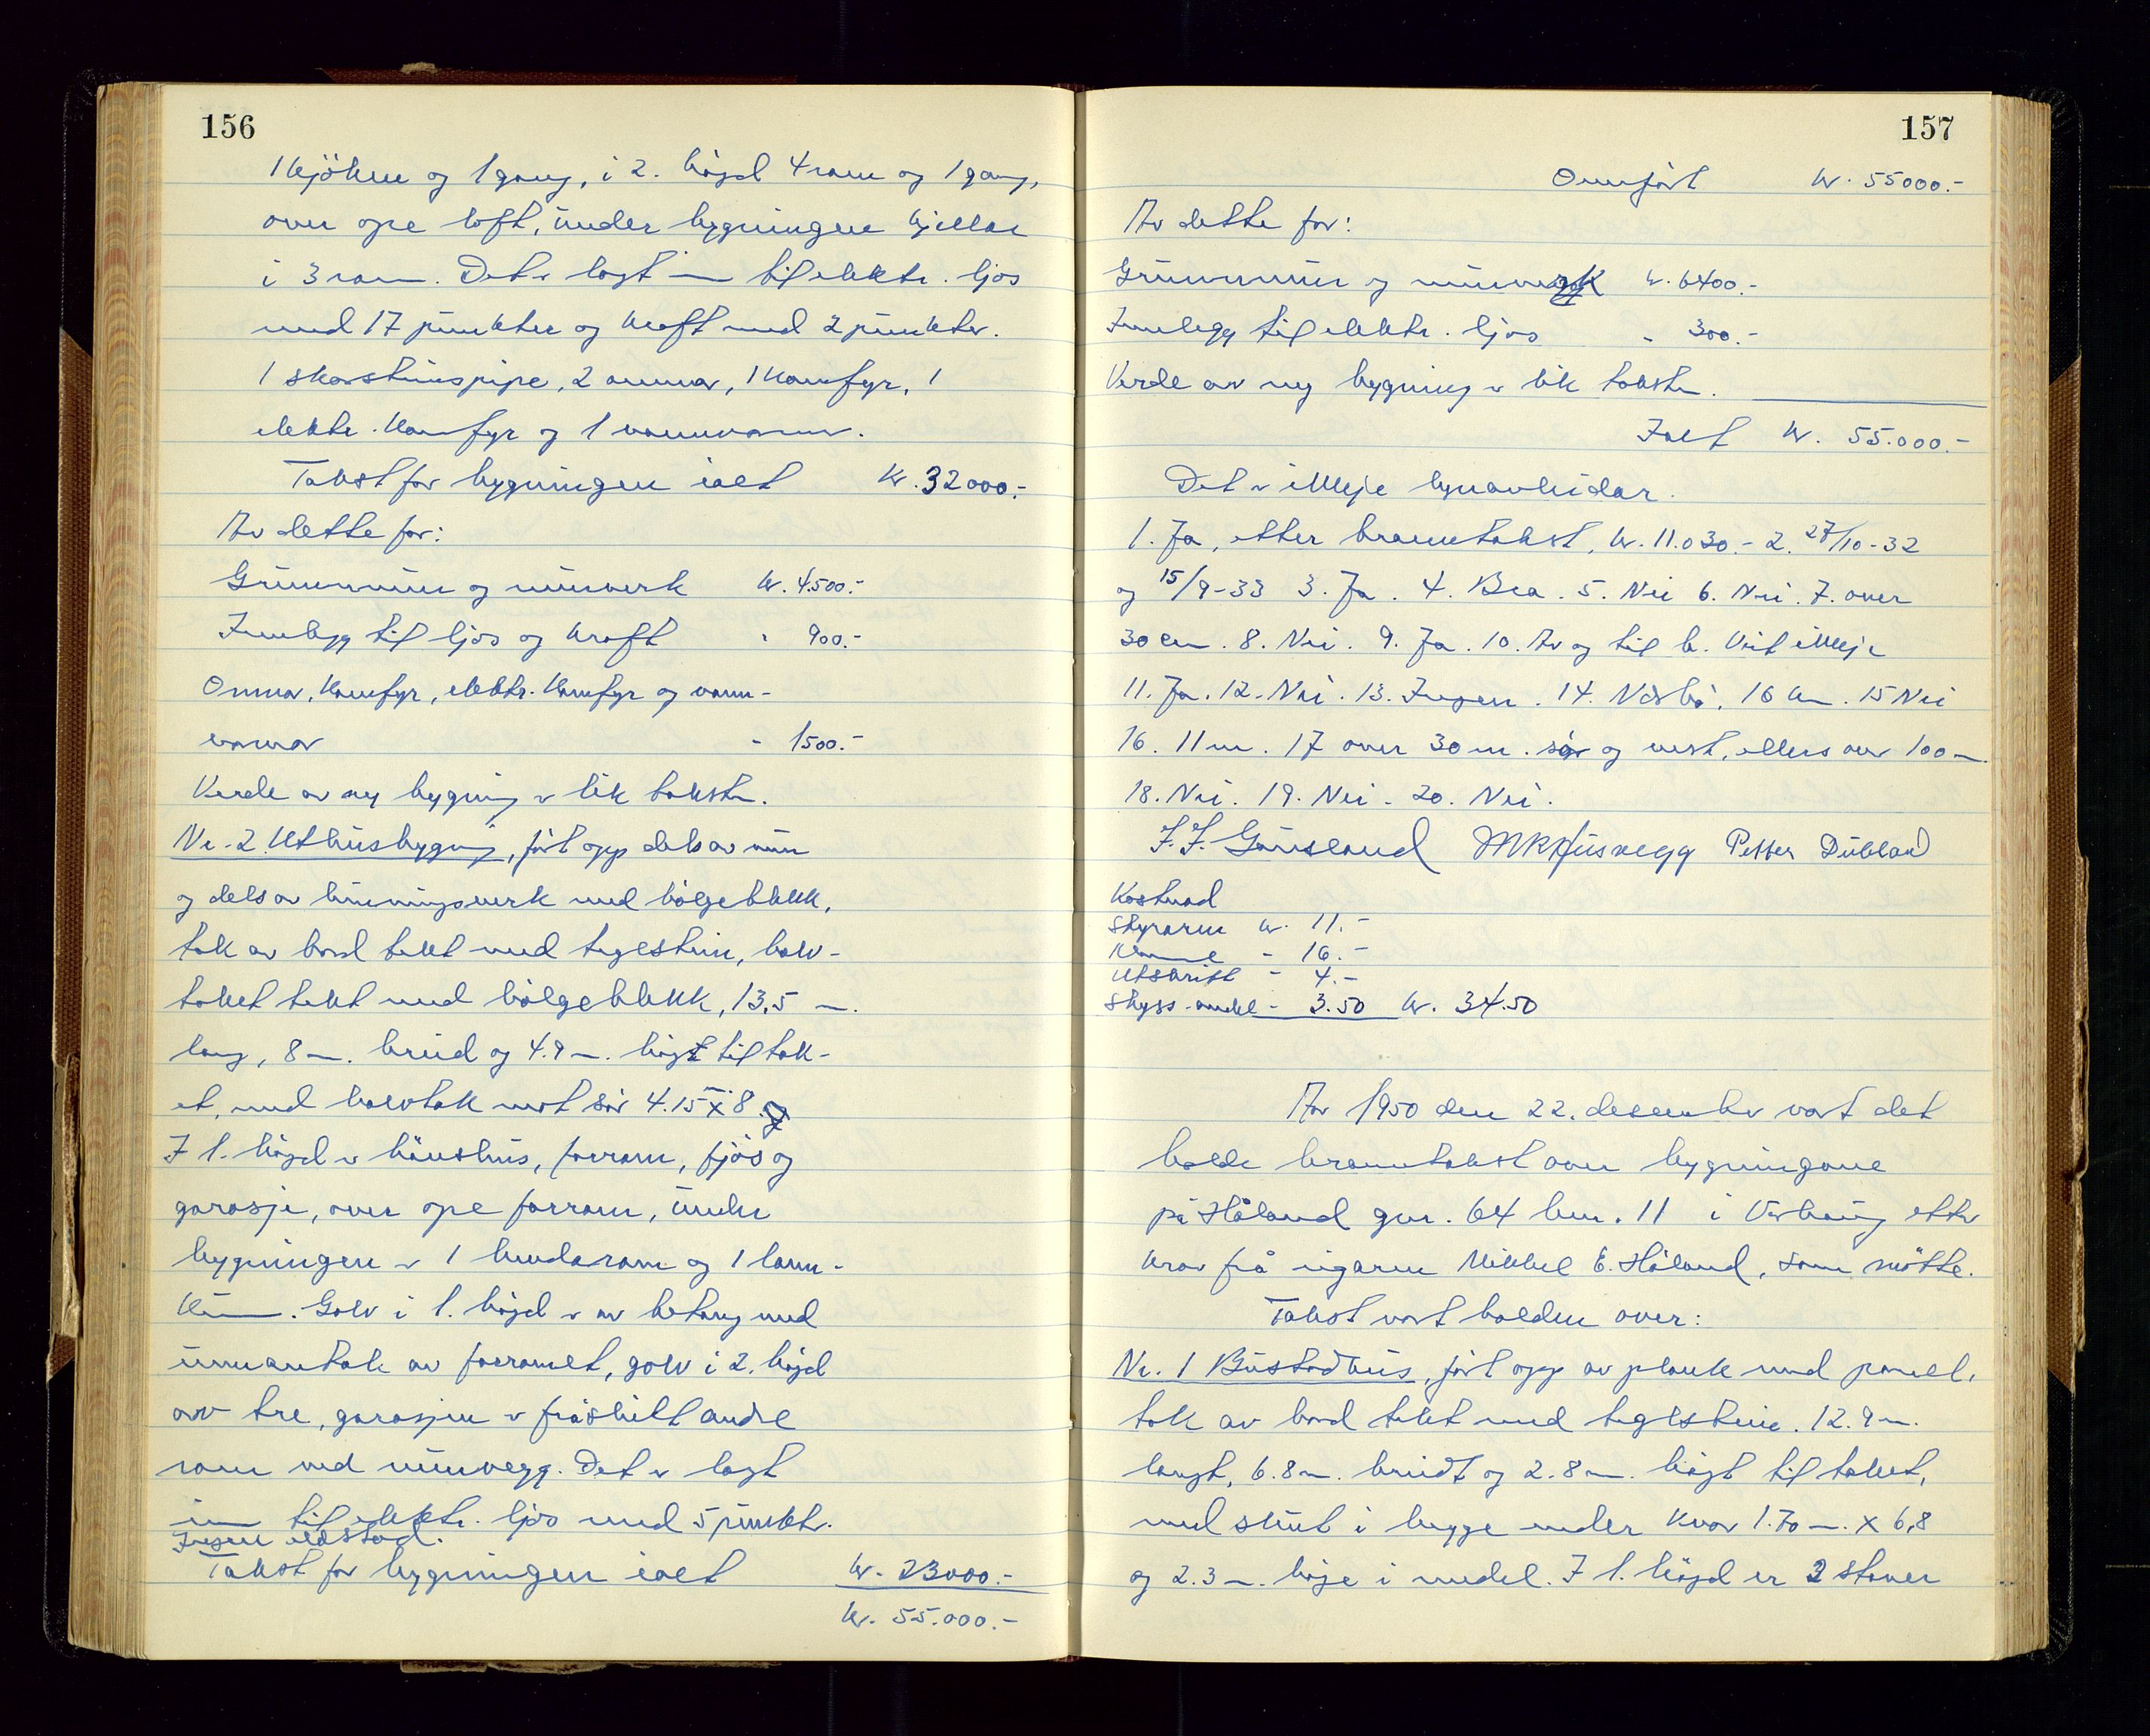 156
1 kjöken og 1 gang, i 2. högd 4 rom og 1 gang,
over ope loft, under bygningen kjellar
i 3 rom. Det er lagt inn til elektr. ljos
med 17 punkter og kraft med 2 punkter.
1 skorsteinspipe, 2 omnar, 1 komfyr, 1
elektr. komfyr og 1 vannvarmer.
Takst for bygningen ialt kr. 32000.-
Av dette for:
Grunnmur og murverk kr. 4.500.-
Innlegg til ljos og kraft " 900.-
Omnar, komfyr, elektr. komfyr og vann-
varmar - 1500.-
Verde av ny bygning er lik taksten.
Nr. 2 Uthusbygning, fört opp dels av mur
og dels av binningsverk med bölgeblekk,
tak av bord tekt med teglstein, halv-
taket tekt med bölgeblekk, 13,5 m.
lang, 8 m. breid og 4.9 m. högt til tak-
et, med halvtak mot sör 4.15 m. x 8.
I 1. högd er hönshus, forrom, fjös og
garasje, over ope forrom, under
bygningen er 1 bendarom og 1 lann-
kum. Golv i 1. högd er av betong med
unnantak av forromet, golv i 2. högd
av tre, garasjen er fråskilt andre
rom med murvegg. Det er lagt
inn til elektr. ljos med 5 punkter.
Ingen eldstad.
Takst for bygningen ialt kr. 23000.-
kr. 55.000.-
157
Omfört kr. 55000.-
Av dette for:
Grunnmur og murverk kr. 6400.-
Innlegg til elektr. ljos - 300.-
Verde av ny bygning er lik taksten.
Ialt kr. 55.000.-
Det er ikkje lynavleidar.
1. Ja, etter branntakst, kr. 11.030.- 2. 27/10-32
og 15/9-33 3. Ja. 4. Bra. 5. Nei 6. Nei. 7. over
30 cm. 8. Nei. 9. Ja. 10. Av og til b. Veit ikkje
11. Ja. 12. Nei. 13. Ingen. 14. Nærbö, 16 km. 15 Nei
16. 11 m. 17 over 30 m. sör og vest, ellers over 100 m.
18. Nei. 19. Nei. 20. Nei.
J. J. Gausland M K Husvegg Petter Dubland
Kostnad
Styraren kr. 11.-
Menne - 16.-
Utskrift - 4.-
Skyss-andel - 3.50 kr. 34.50
År 1950 den 22. desember vart det
halde branntakst over bygningane
på Håland gnr. 64 bnr. 11 i Varhaug etter
krav frå eigaren Mikkel E. Håland, som mötte.
Takst vart halden over:
Nr. 1 Bustadhus, fört opp av plank med panel,
tak av bord tekt med teglstein. 12.9 m.
langt, 6.8 m. breidt og 2.8 m. högt til taket,
med skut i begge ender kvar 1.70 m. x 6,8
og 2.3 m. höge i medel. I 1. högd er 2 stover